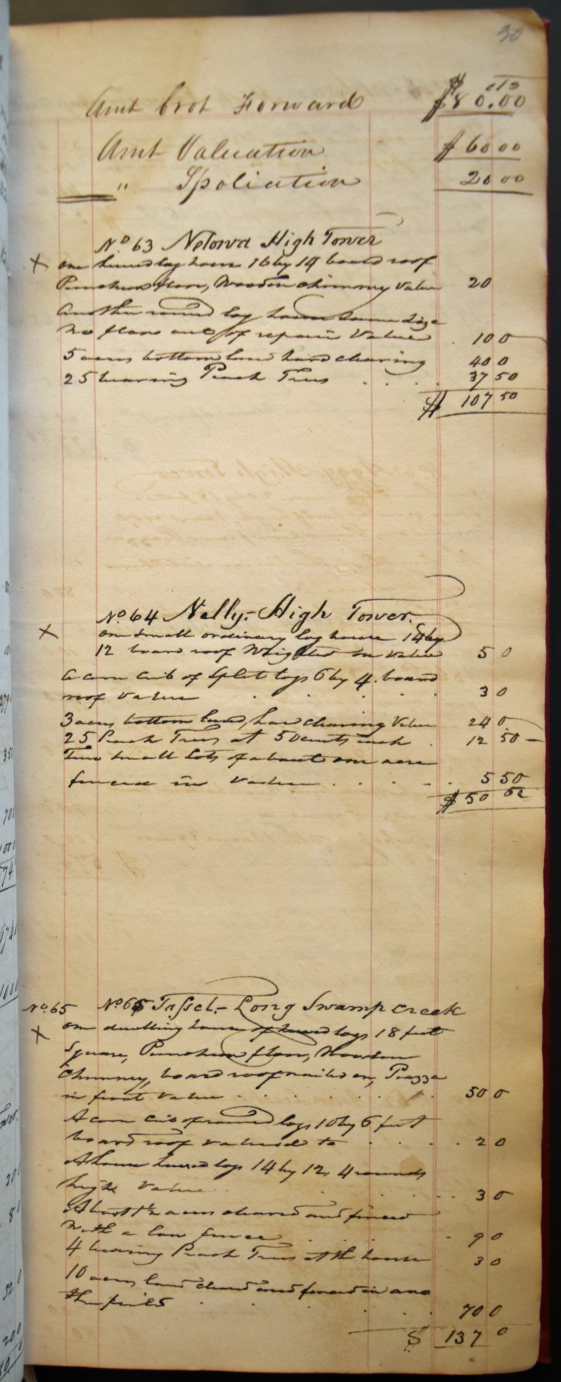 30
Amt Brot Forward $80.00
Amt Valuation $60 00
" Spoliation 20 00
No 63 High Tower
X one hewed log house 16 by 14 board roof
Puncheon floor, Wooden chimney value 20
Another round log house same size
no floor out of repair Value 10 0
5 acres bottom land hard clearing 40 0
25 bearing Peach Trees 37 50
$ 107 50
No 64 Nelly - High Tower.
X one small ordinary log house 14 by
12 board roof Weighted on Value 5 0
a corn crib of split logs 6 by 4. board
roof Value 3 0
3 acres bottom land, hard clearing Value 24 0
25 Peach Trees at 50 cents each 12 50
Two small lots of about one acre
fenced in Value 5 50
$ 50
No 65 No 65 Tassel - Long Swamp creek
X one dwelling house of hewed logs 18 feet
Square, Puncheon floor, Wooden
Chimney, board roof nailed on, Piazza
in front Value 50 0
A corn crib of round logs 10 by 6 feet
board roof valued to 2 0
A house hewed logs 14 by 12, 4 rounds
high Value 3 0
About acres cleared and fenced
with a low fence 9 0
4 bearing Peach Trees at the house 3 0
10 acres land cleared and fenced in ano
ther field 70 0
$ 137 0